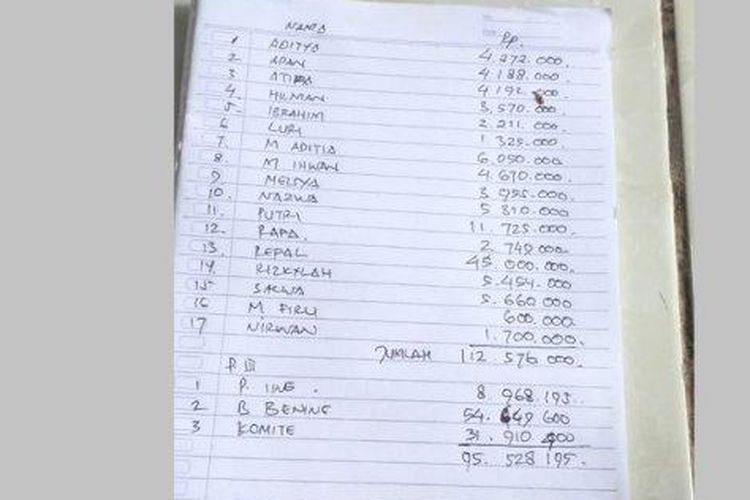 NAMA Rp.
1 ADITYA 4.272.000.
2. APAN 4.188.000.
3 ATIKA 4.192.000.
4 HILMAN 3.570.000.
5. IBRAHIM 2.211.000.
6 LURI 1.325.000.
7. M ADITIA 6.050.000
8. M IHWAN 4.670.000.
9. MELSYA 3.955.000.
10. NAZWA 5.310.000
11. PUTRI 11.725.000
12. RAPA. 2.749.000.
13. REPAL 45.000.000.
14. RIZKYLAH 5.454.000
15 SALWA 5.660.000
16 M FIRLI 600.000
17 NIRWAN 1.700.000.
JUMLAH 112 576.000.
P. III
1 P. IKE. 8.968.195
2 B BENING 54.649 600
3 KOMITE 31.910 400
95. 528 195.